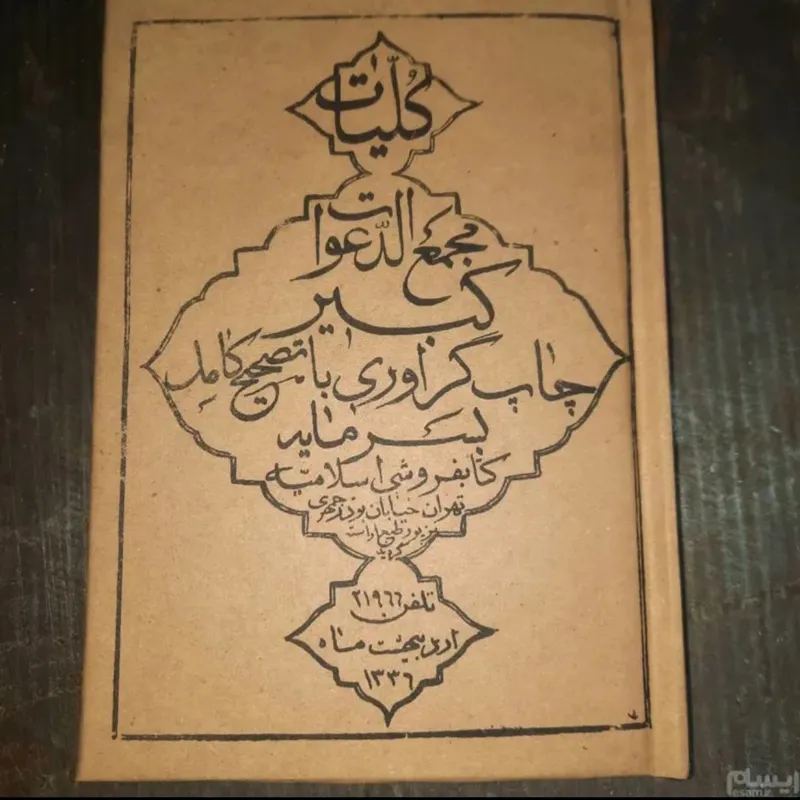 کُلّیّات
مجمع الدّعوات
کبیر
چاپ گراوری با تصحیح کامل
بسرمایه
کتابفروشی اسلامیه
تهران خیابان بوذرجمهری
بزیور طبع آراسته
گردید
تلفن ۲۱۹۶۶
اردیبهشت ماه
۱۳۳۶
ایسام
esam.ir